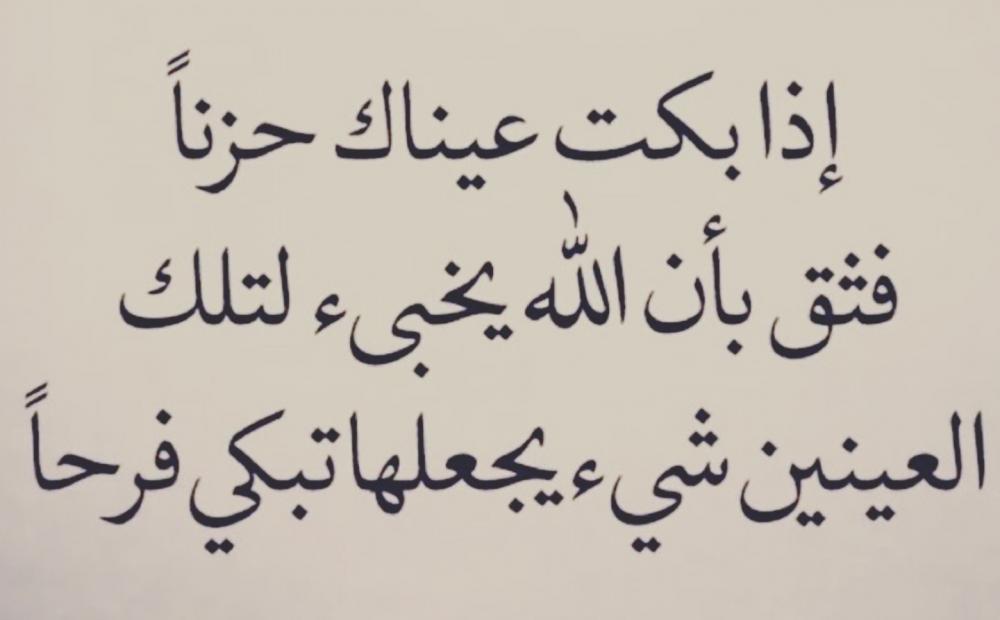 إذا بكت عيناك حزناً
فثق بأن الله يخبىء لتلك
العينين شيء يجعلها تبكي فرحاً